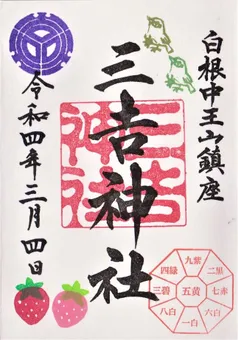 白根中王山鎮座
三吉神社
三吉神社
令和四年三月四日
九紫
四緑
二黒
三碧
五黄
七赤
八白
六白
一白